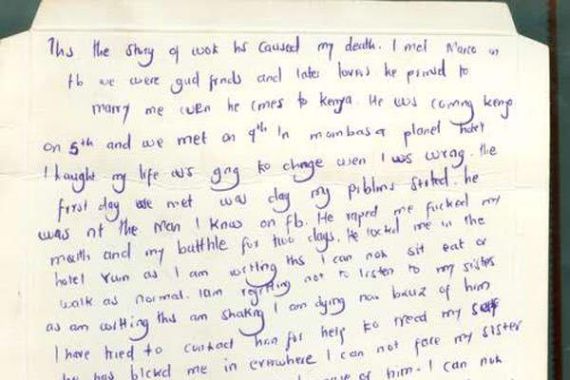 This the story of wok hs caused my death. I met Marco on
fb we were gud frnds and later lovers he promsd to
marry me wen he cmes to kenya. He ws coming kenya
on 5th and we met on 9th In mombasa planet hotel
I thaught my life ws gng to chnge wen I ws wrog. the
first day we met was day my prblms stated. he
was nt the man I know on fb. He raped me fucked my
mouth and my butthle for two days. He locked me in the
hotel rum as I am writing ths I can nok sit eat or
walk as normal. Iam regriting not to listen to my sisters
as am writting this am shaking I am dying now bcuz of him
I have tried to contact him for help to med my self
he has blcked me in evrywhere I can not face my sister
of him. I can nok